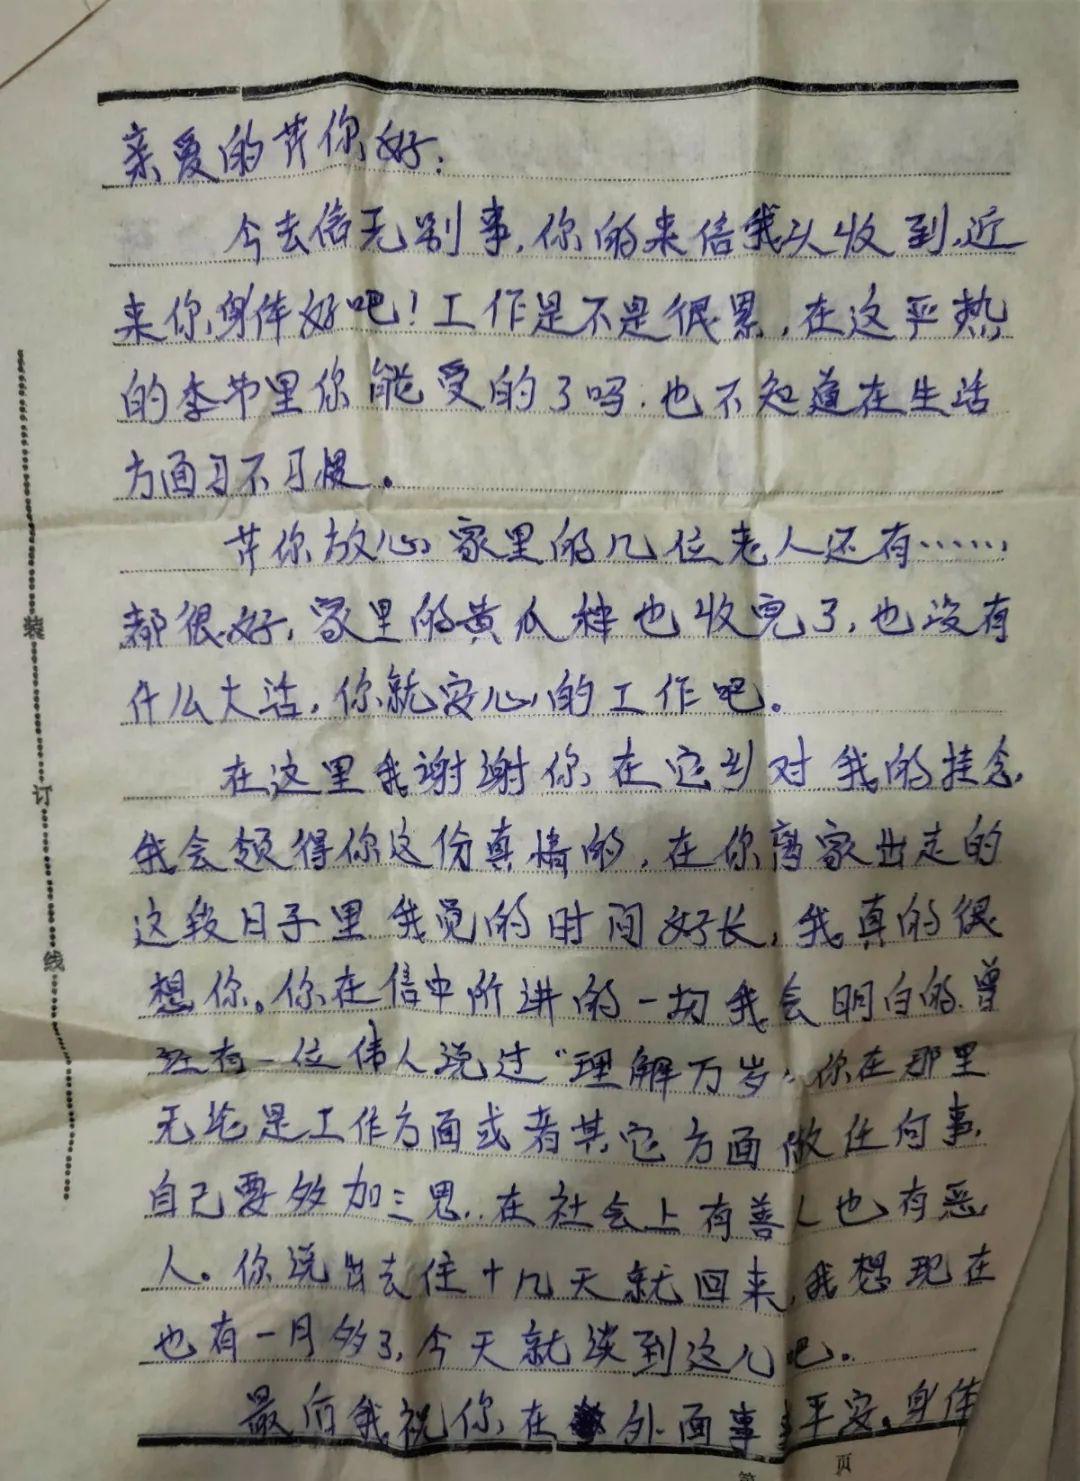 亲爱的芹你好:
今去信无别事,你的来信我以收到,近
来你身体好吧!工作是不是很累,在这严热
的季节里你能受的了吗.也不知道在生活
方面习不习惯。
芹你放心,家里的几位老人还有……
都很好,家里的黄瓜种也收完了,也没有
什么大活,你就安心的工作吧。
在这里我谢谢你在它乡对我的挂念,
我会领得你这份真情的,在你离家出走的
这段日子里我觉的时间好长,我真的很
想你。你在信中所讲的一切我会明白的.曾
经有一位伟人说过"理解万岁,你在那里
无论是工作方面或者其它方面做任何事,
自己要多加三思,.在社会上有善人也有恶
人。你说出去住十几天就回来,我想现在
也有一月多了,今天就谈到这儿吧。
最后我祝你在外面事事平安。身体
装
订
线
第 页